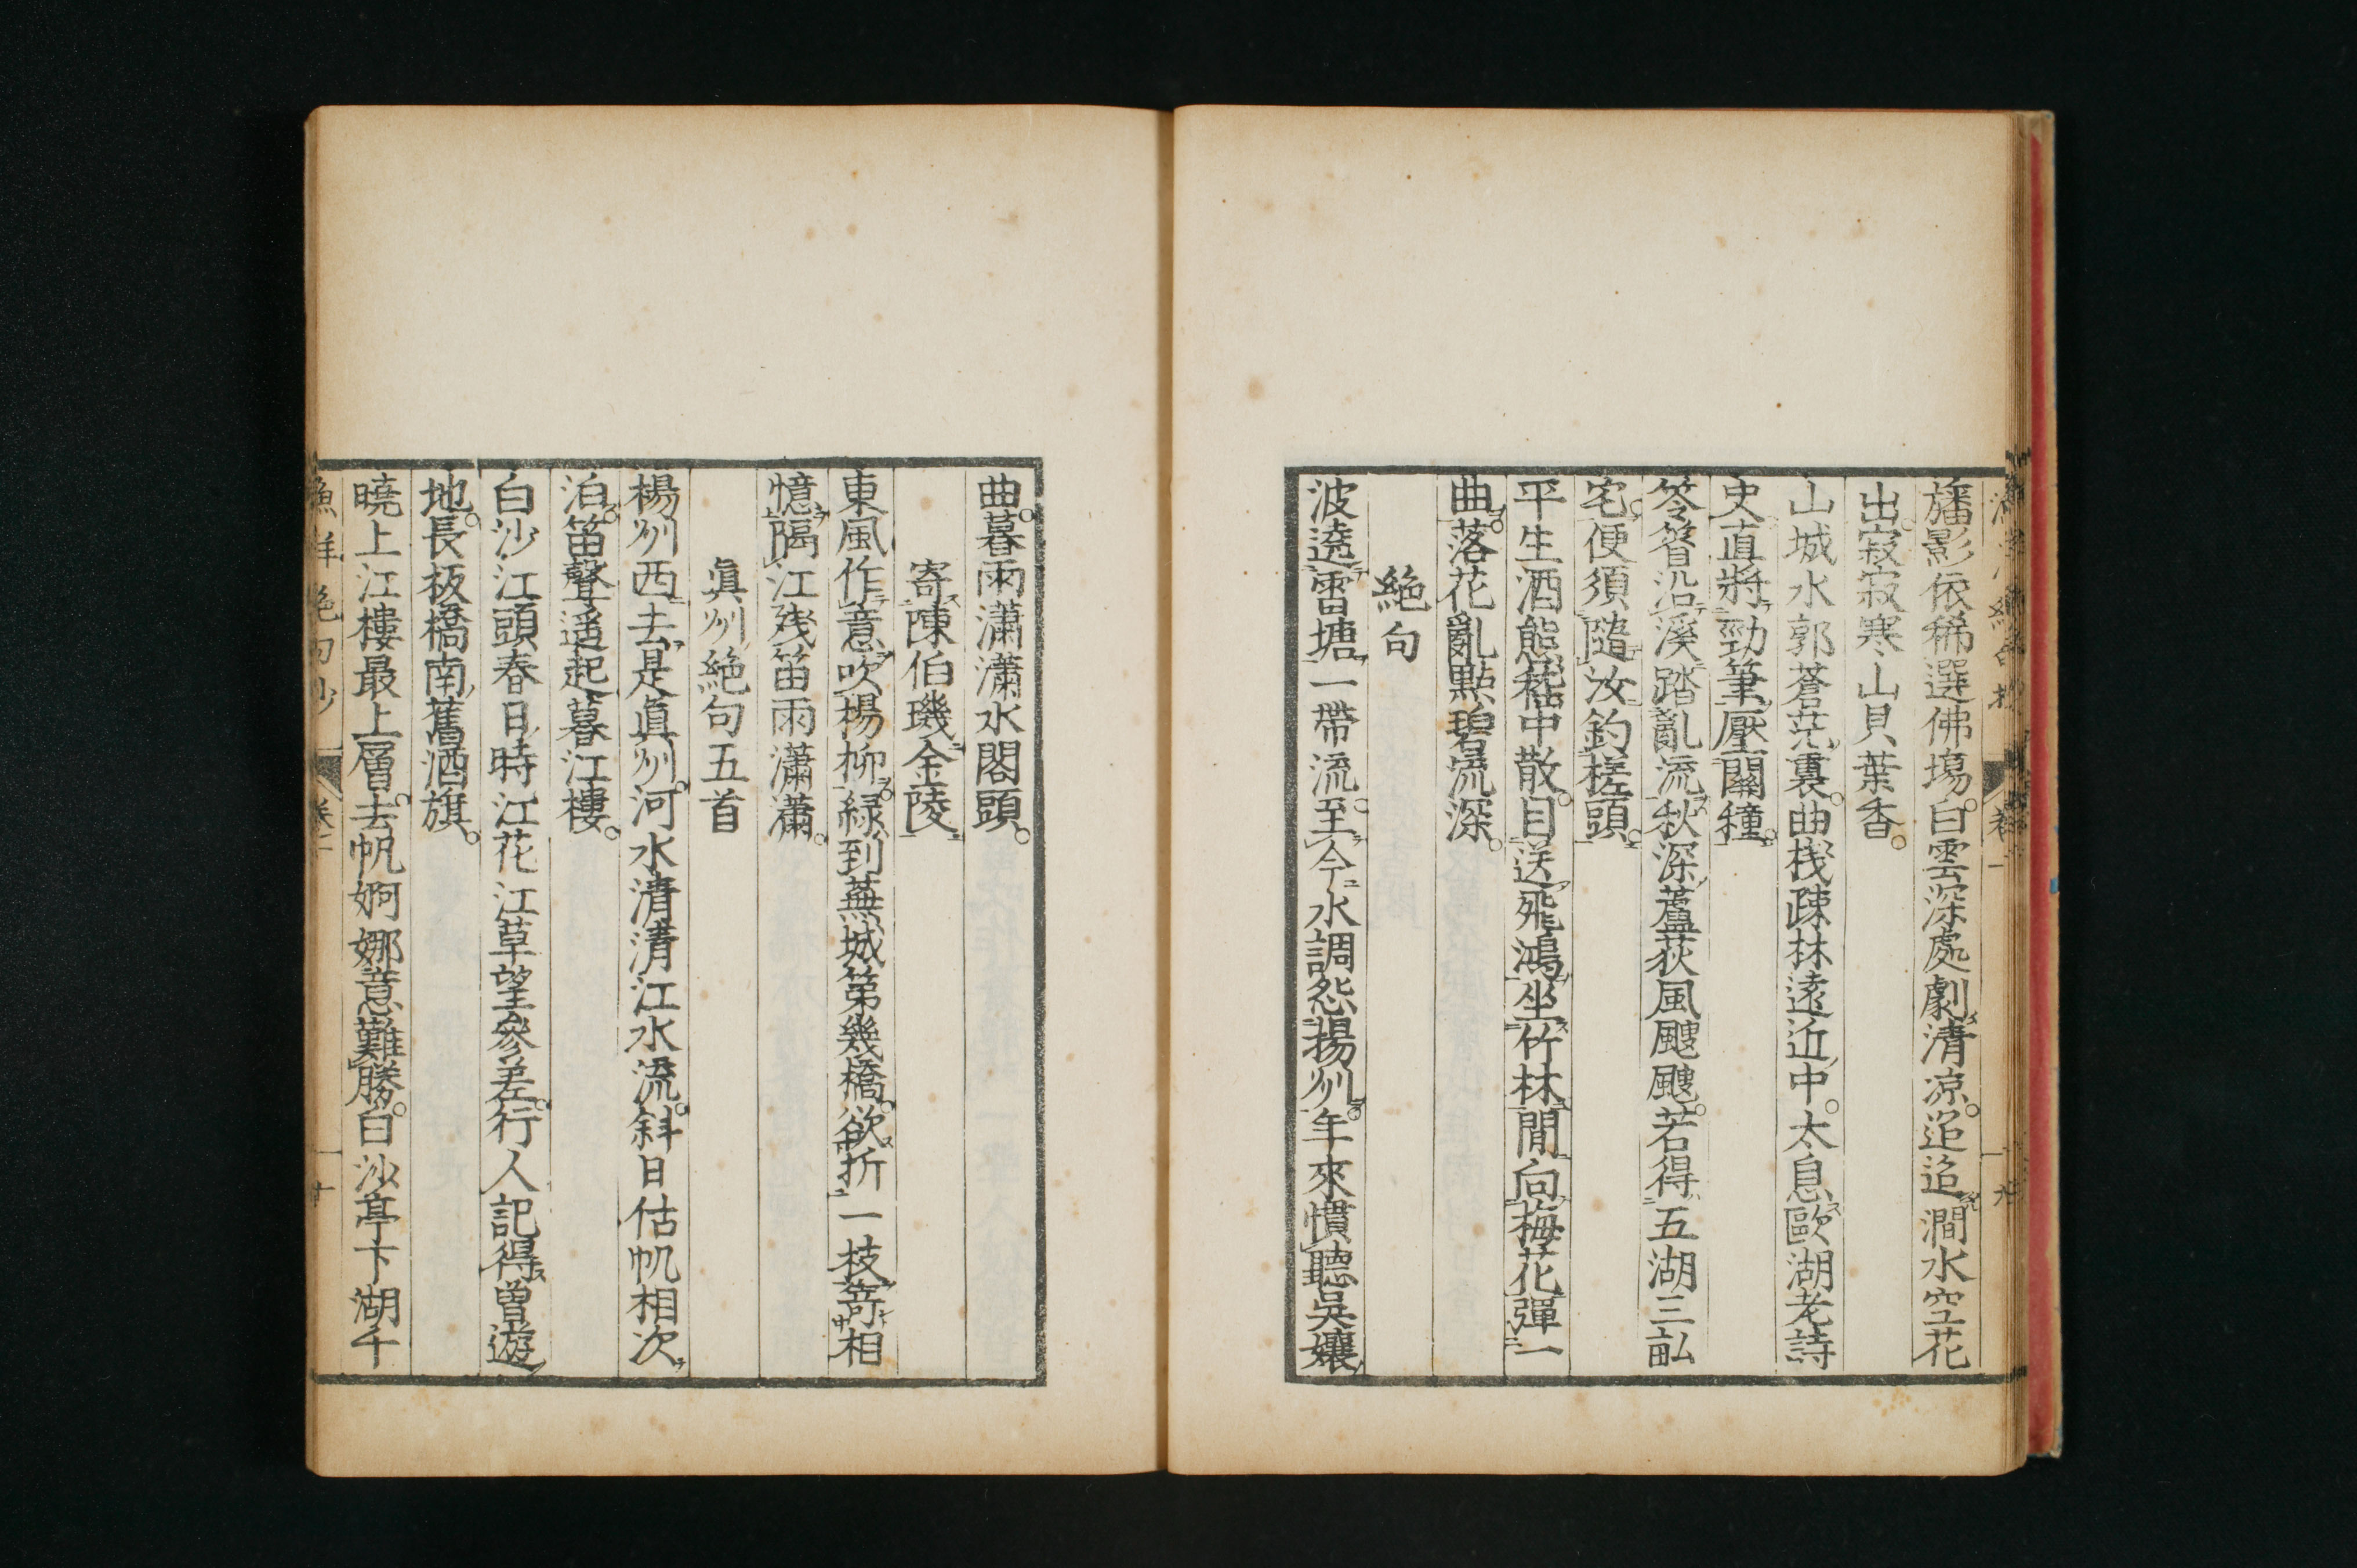 旛影依稀選佛場。白雲深處劇清凉。迢迢澗水空花
出。寂寂寒山貝葉香。
山城水郭蒼茫裏。曲栈疎林遠近中。太息歐湖老詩
史。直將勁筆壓關穜。
笭箵沿溪踏亂流。秋深蘆荻風颼颼。若得五湖三畝
宅。便須隨汝釣槎頭。
平生酒態嵇中散。目送飛鴻坐竹林。閒向梅花彈一
曲。落花亂點碧流深。
絶句
波遶雷塘一帶流。至今水調怨揚州。年來慣聽吳孃
曲。暮雨瀟瀟水閣頭。
寄陳伯璣金陵
東風作意吹楊柳。緑到蕪城第幾橋。欲折一枝寄相
憶。隔江殘笛雨瀟瀟。
眞州絶句五首
楊州西去是眞州。河水清清江水流。斜日估帆相次
泊。笛聲遥起暮江樓。
白沙江頭春日時。江花江草望參差。行人記得曽遊
地。長板橋南舊酒旗。
曉上江樓最上層。去帆婀娜意難勝。白沙亭下湖千
漁洋絶句抄 卷二 十